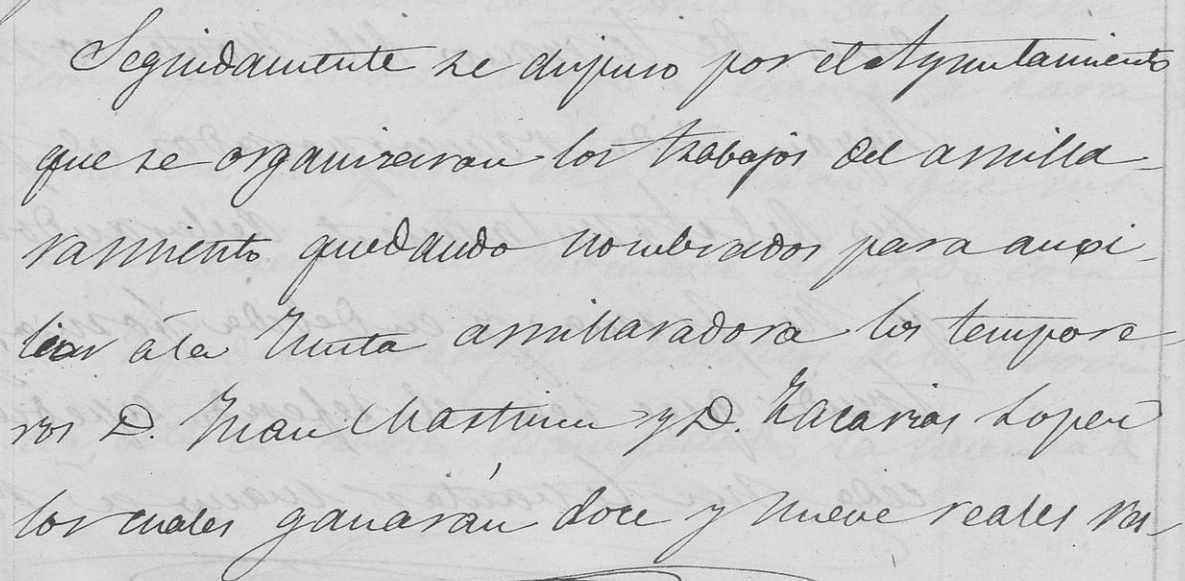 Seguidamente se dispuso por el Ayuntamiento
que se organizaran los trabajos del amilla-
ramiento quedando nombrados para auxi-
liar á la Junta amillaradora los tempore-
ros D. Juan Martinez y D. Zacarias Lopez
los cuales ganarán doce y nueve reales res-